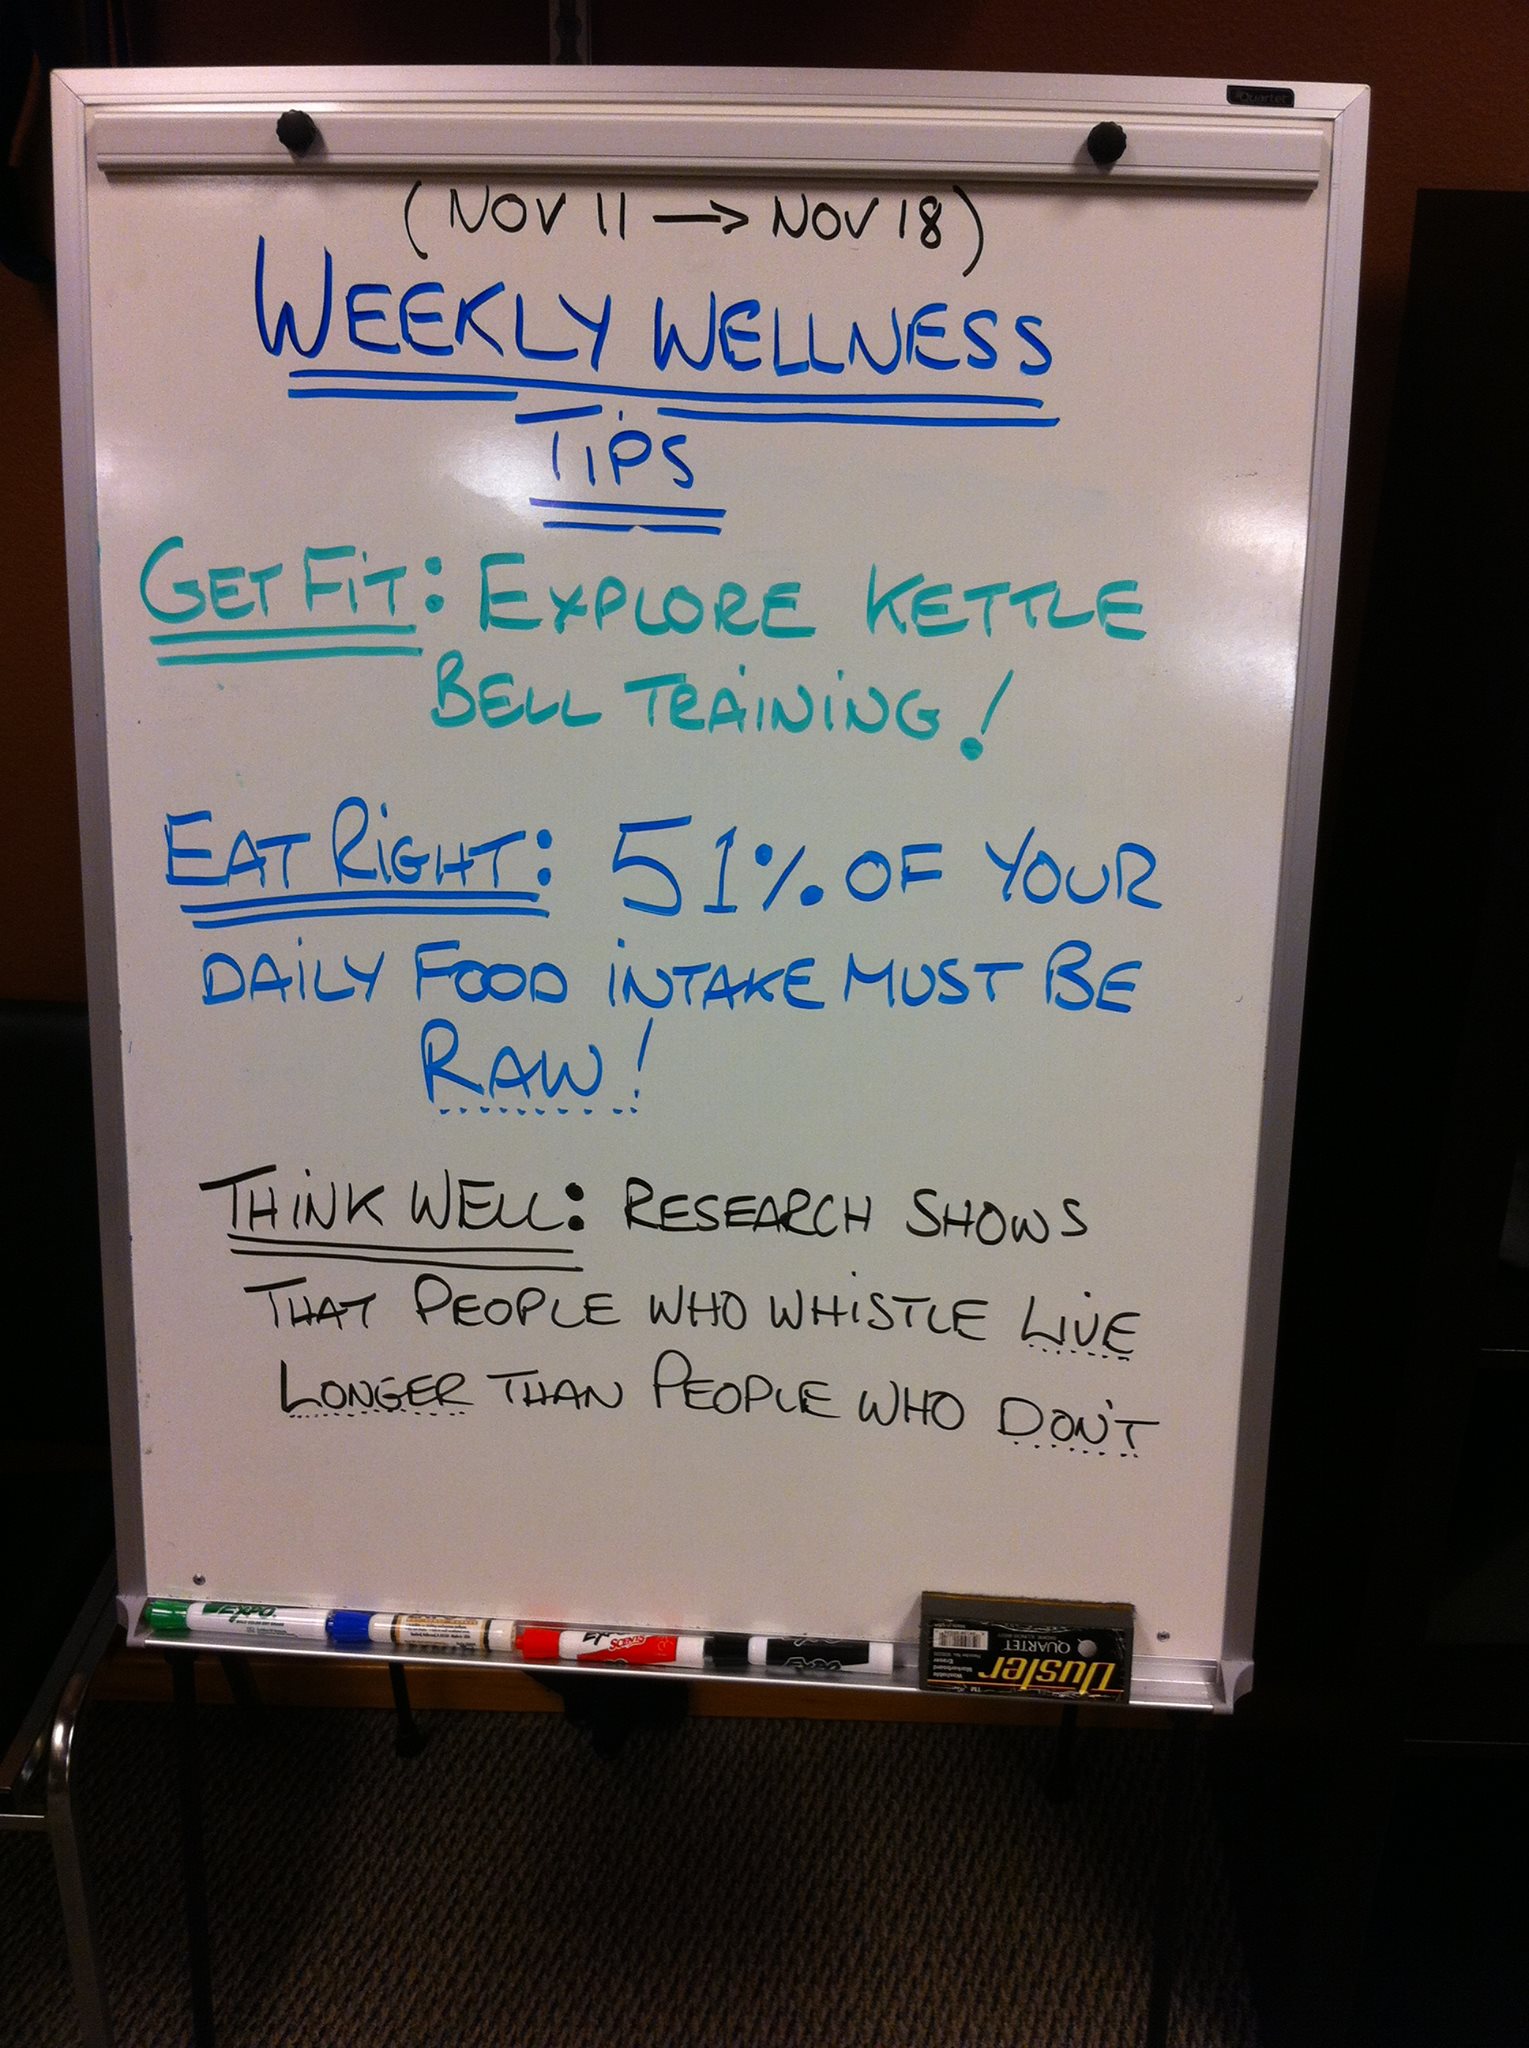 Quartet
(NOV 11 → NOV 18)
WEEKLY WELLNESS
TiPS
GET FiT: EXPLORE KETTLE
BELL TRAiNiNG!
EAT RiGHT: 51% OF YOUR
DAiLY FOOD iNTAKE MUST BE
RAW!
THiNK WELL: RESEARCH SHOWS
THAT PEOPLE WHO WHiSTLE LiVE
LONGER THAN PEOPLE WHO DON'T
Expo
Expo
SCENTS
Expo
QUARTET
Duster
TM